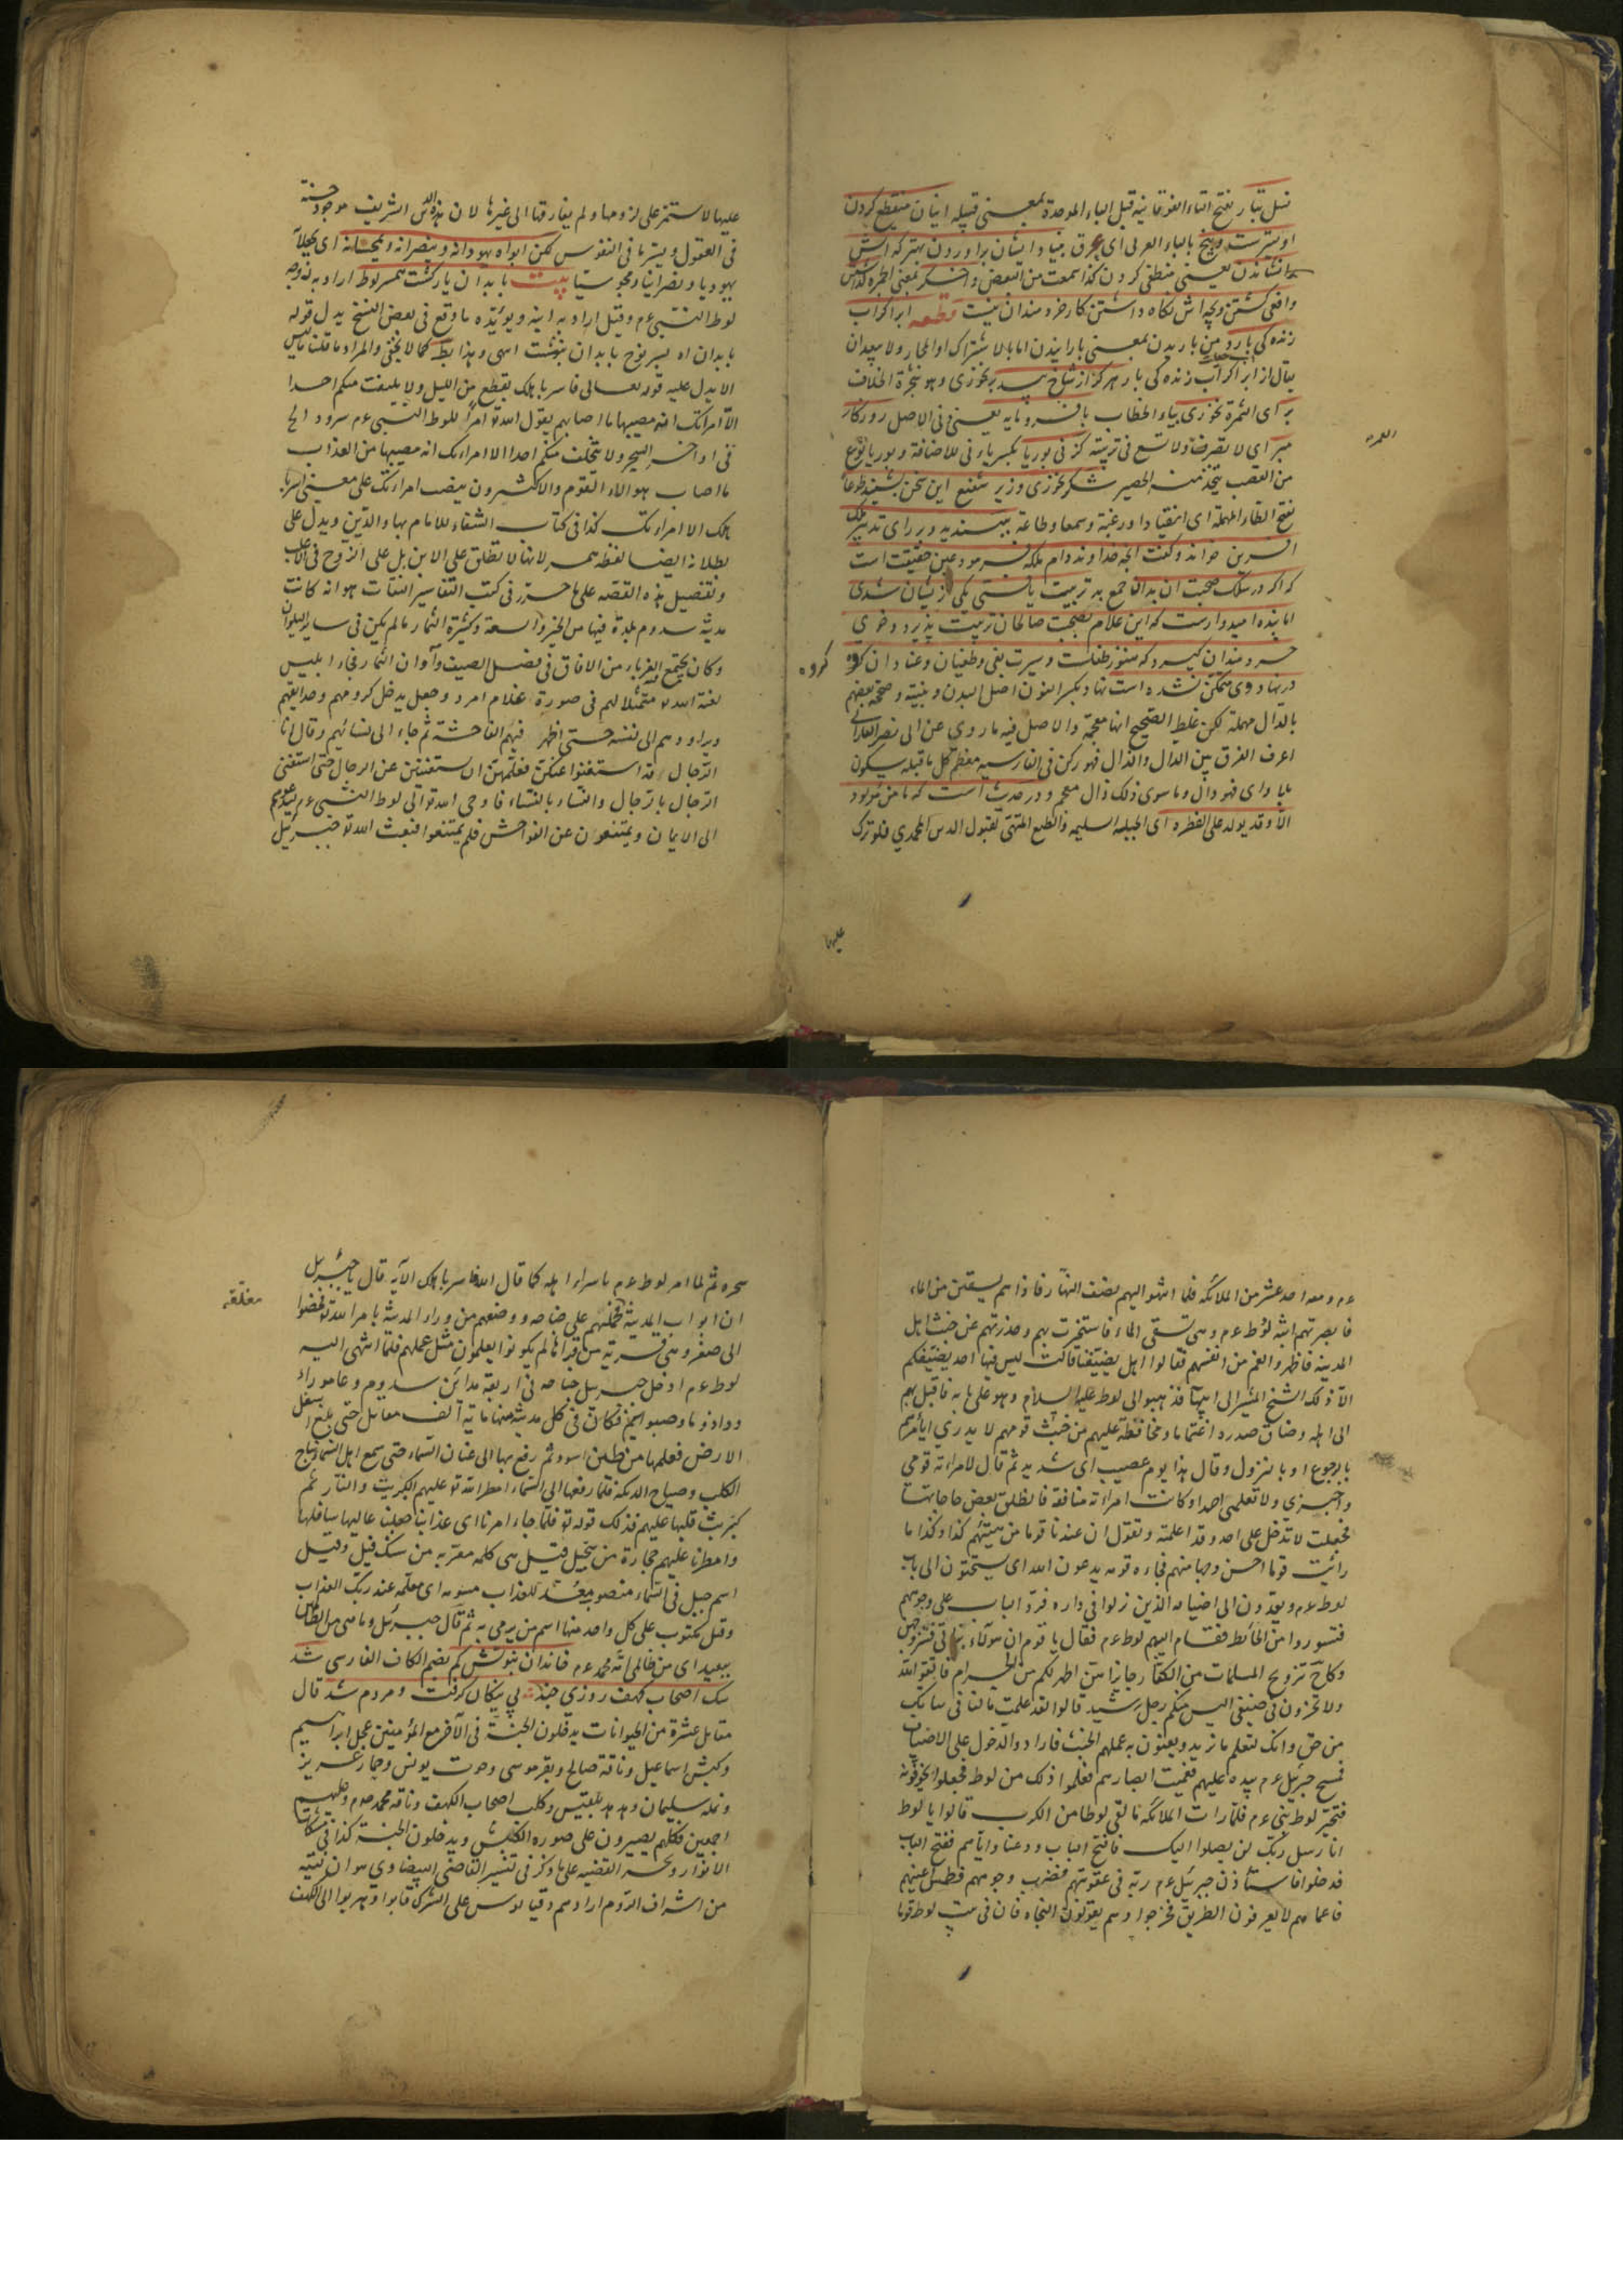 نسل تبار بفتح التاء الفوقانية قبل الباء الموحدة بمعنى قبيله اينان منقطع كردن
اوليترست وبيخ بالباء العربى اى عرق بنياد ايشان براوردن بهتر كه اتش
نشاندن يعنى منطفى كردن كذا سمعت من البعض واخگر بمعنى الجمرة گذاشتن
وافعى كشتن وبچه اش نگاه داشتن كار خردمندان نيست قطعه ابر اگر آب
زنده گى بارد من باريدن بمعنى بارانيدن اما بالاشتراك او المجاز ولا يبعد ان
يقال از ابر اگر آب زنده گى بار هرگز از شاخ بيد بر نخورى وهو شجرة الخلاف
بر اى الثمرة نخورى بياء الخطاب با فرومايه يعنى فى الاصل روزگار
مبر اى لا تصرف ولا تسع فى تربيته كز نى بوريا بكسر ياء نى للاضافة وبوريا نوع
من القصب يتخذ منه الحصير شكر نخورى وزير شفيع اين سخن بشنيد طوعا
بفتح الطاء المهملة اى انقيادا ورغبة وسمعا وطاعة بپسنديد وبر راى تدبير ملك
افرين خواند وگفت انچه خداوند دام ملكه فرمود عين حقيقت است
كه اگر در سلك صحبت ان بدان جمع به تربيت يافتى يكى از يشان شدى
اما بنده اميدوارست كه اين غلام بصحبت صالحان تربيت پذيرد وخوى
خردمندان گيرد كه هنوز طفلست وسيرت بغى وطغيان وعناد ان گروه
گروه
در نهاد وى متمكن نشده است نهاد بكسر النون اصل البدن وبنيته وصححه بعضهم
بالدال مهملة لكن غلط الصحيح انها معجمة والاصل فيه ما روى عن ابى نصر الفارابى
اعرف الفرق بين الدال والذال فهو ركن فى الفارسيه معظم كل ما قبله سكون
بلا واى فهو دال وما سوى ذلك ذال معجم ودر حديث است كه ما من مولود
الا وقد يولد على الفطره اى الجبلة السليمة والطبع المتهيئ لقبول الدين المحمدى فلو ترك
عليها
عليها لاستمر على لزومها ولم يفارقها الى غيرها لان هذا الدين الشريف موجود حسنه
فى العقول ويسرها فى النفوس لكن ابواه يهودانه وينصرانه ويمجسانه اى يجعلانه
يهوديا ونصرانيا ومجوسيا بيت با بدان يار گشت همسر لوط اراد به زوجة
لوط النبى عم وقيل اراد به ابنه ويويده ما وقع فى بعض النسخ بدل قوله
با بدان اه پسر نوح با بدان بنشست انتهى وهذا بطل كما لا يخفى والمراد ما قلنا اليس
الا يدل عليه قوله تعالى فاسر باهلك بقطع من الليل ولا يلتفت منكم احدا
الا امراتك انه مصيبها ما اصابهم يقول الله تع امرا للوط النبى عم سر ود اخ
فى اواخر السحر ولا يتخلف منكم احدا الا امراتك انه مصيبها من العذاب
ما اصاب هولاء القوم والاكثرون بنصب امراتك على معنى اسر با
هلك الا امراتك كذا فى كتاب الشفاء للامام بهاء الدين ويدل على
بطلانه ايضا لفظ همسر لانها لا تطلق على الابن بل على الزوج فى الاغلب
وتفصيل هذه القصة على ما حرر فى كتب التفاسير الثقات هو انه كانت
مدينة سدوم بلدة فيها من الخير والسعة وكثرة الثمار مالم يكن فى ساير البلدان
وكان يجتمع الغرباء من الافاق فى فصل الصيف وآوان الثمار فجاء ابليس
لعنه الله متمثلا لهم فى صورة غلام امرد وجعل يدخل كرومهم وحدائقهم
ويراودهم الى نفسه حتى اظهر فيهم الفاحشة ثم جاء الى نسائهم وقال ان
الرجال قد استغنوا عنكن فعلمهن ان يستغنين عن الرجال حتى استغنى
الرجال بالرجال والنساء بالنساء فاوحى الله تعالى لوط النبى عم ليدعوهم
الى الايمان ويمتنعون عن الفواحش فلم يمتنعوا فبعث الله تع جبرئيل
عم ومعه احد عشر من الملائكه فلما انتهوا اليهم نصف النهار فاذا هم يستقين من الماء
فابصرتهم ابنة لوط عم وهى تستقى الماء فاستخبرت بهم وحذرتهم عن خبث اهل
المدينه فاظهروا الغم من انفسهم فقالوا اهل يضيفنا قالت ليس فيها احد يضيفكم
الا ذلك الشيخ المشير الى ابيها فذهبوا الى لوط عليه السلام وهو على بابه فاقبل بهم
الى اهله وضاق صدره اغتماما ومخافة عليهم من خبث قومهم لا يدرى ايامرهم
بالرجوع او بالنزول وقال هذا يوم عصيب اى شديد ثم قال لامراته قومى
واخبزى ولا تعلمى احدا وكانت امراته منافقة فانطلق بعض حاجاتها
فجعلت لا تدخل على احد وقد اعلمته وتقول ان عندنا قوما من هيئتهم كذا وكذا ما
رايت قوما احسن وجها منهم فجاءه قومه يدعون الله اى يستحثون الى باب
لوط عم ويعدون الى اضيافه الذين نزلوا فى داره فرد الباب على وجوههم
فتسوروا من الحائط فقام اليهم لوط عم فقال يا قوم ان هولاء بناتى فتزوجهن
وكان تزويج المسلمات من الكفار جايزا هن اطهر لكم من الحرام فاتقوا الله
ولا تخزون فى ضيفى اليس منكم رجل رشيد قالوا لقد علمت مالنا فى بناتك
من حق وانك لتعلم ما نريد ويعنون به عملهم الخبث فارادوا الدخول على الاضياف
فمسح جبرئيل عم بيده عليهم فعميت ابصارهم فعلموا ذلك من لوط فجعلوا يخوفونه
فتحير لوط نبى عم فلما رات الملائكه ما لقى لوطا من الكرب قالوا يا لوط
انا رسل ربك لن يصلوا اليك فافتح الباب ودعنا واياهم ففتح الباب
فدخلوا فاستاذن جبرئيل عم ربه فى عقوبتهم فضرب وجوههم فطمس اعينهم
فاعماهم لا يعرفون الطريق فخرجوا وهم يقولون النجاه فان فى بيت لوط قوما
سحره ثم لما امر لوط عم باسراء اهله كما قال الله فاسر باهلك الآيه قال يا جبرئيل
ان ابواب المدينة مغلقة فحملهم على جناحه ووضعهم من وراء المدينة بامر الله تع فمضوا
مغلقه
الى صغر وهى قرية من قراها لم يكونوا يعلمون مثل عملهم فلما انتهى اليه
لوط عم ادخل جبرئيل جناحه فى اربعة مداين سدوم وعاموراء
ودادوما وصبوائيم فكان فى كل مدينة منها ماية الف مقاتل حتى بلغ اسفل
الارض فعلمها من طين اسود ثم رفع بها الى عنان السماء حتى سمع اهل السماء نباح
الكلب وصياح الديكة فلما رفعها الى السماء امطر الله تع عليهم الكبريت والنار ثم
كبريت قلبها عليهم فذلك قوله تع فلما جاء امرنا اى عذابنا جعلنا عاليها سافلها
وامطرنا عليهم حجارة من سجيل قيل هى كلمه معربه من سنگ وگل وقيل
اسم جبل فى السماء منضود معد للعذاب مسومه اى معلمه عند ربك العذاب
وقيل مكتوب على كل واحد منها اسم من يرمى به ثم قال جبرئيل وما هى من الظالمين
ببعيد اى من ظالمى امة محمد عم خاندان نبوتش گم بضم الكاف الفارسى شد
سگ اصحاب كهف روزى چند پى نيكان گرفت ومردم شد قال
مقاتل عشرة من الحيوانات يدخلون الجنة فى الآخر مع المؤمنين عجل ابراهيم
وكبش اسماعيل وناقة صالح وبقر موسى وحوت يونس وحمار عزيز
ونملة سليمان وهدهد بلقيس وكلب اصحاب الكهف وناقه محمد صم وعليهم
اجمعين فكلهم يصيرون على صوره الكبش ويدخلون الجنة كذا فى مشكات
الانوار وخمسة القضيه على ما ذكر فى تفسير القاضى البيضاوى هو ان فتية
من اشراف الروم ارادهم دقيانوس على الشرك فابوا وهربوا الى الكهف